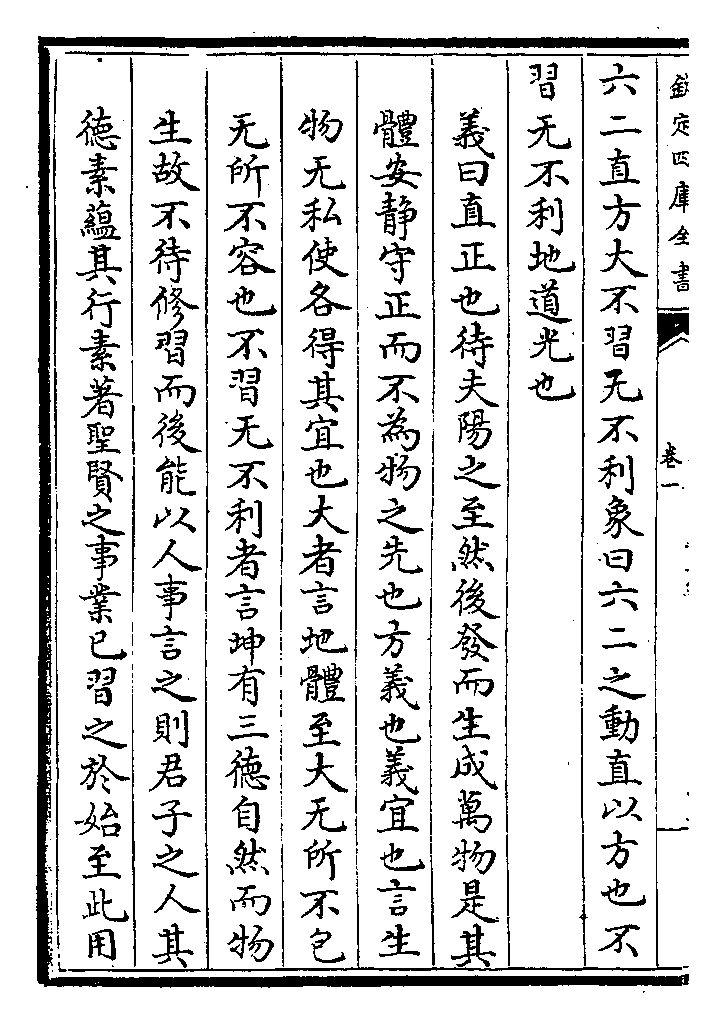 欽定四庫全書
卷一
六二直方大不習无不利象曰六二之動直以方也不
習无不利地道光也
義曰直正也待夫陽之至然後發而生成萬物是其
體安静守正而不為物之先也方義也義宜也言生
物无私使各得其宜也大者言地體至大无所不包
无所不容也不習无不利者言坤有三德自然而物
生故不待修習而後能以人事言之則君子之人其
德素蘊其行素著聖賢之事業已習之於始至此用